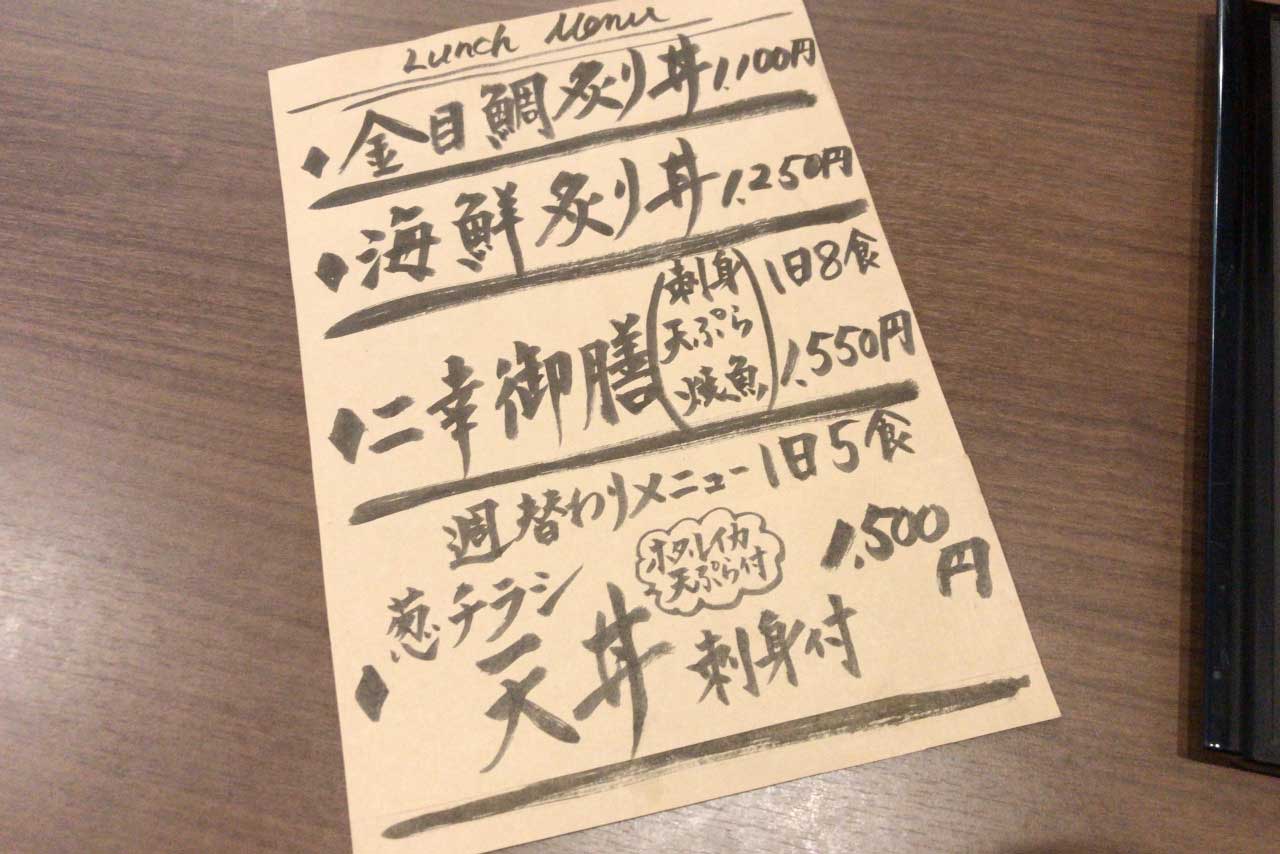 Lunch Menu
◆金目鯛炙り丼 1,100円
◆海鮮炙り丼 1,250円
◆二幸御膳(刺身 天ぷら 焼魚) 1日8食 1,550円
週替わりメニュー 1日5食
葱チラシ
ホタレイカ
天ぷら付
1,500円
◆天丼 刺身付